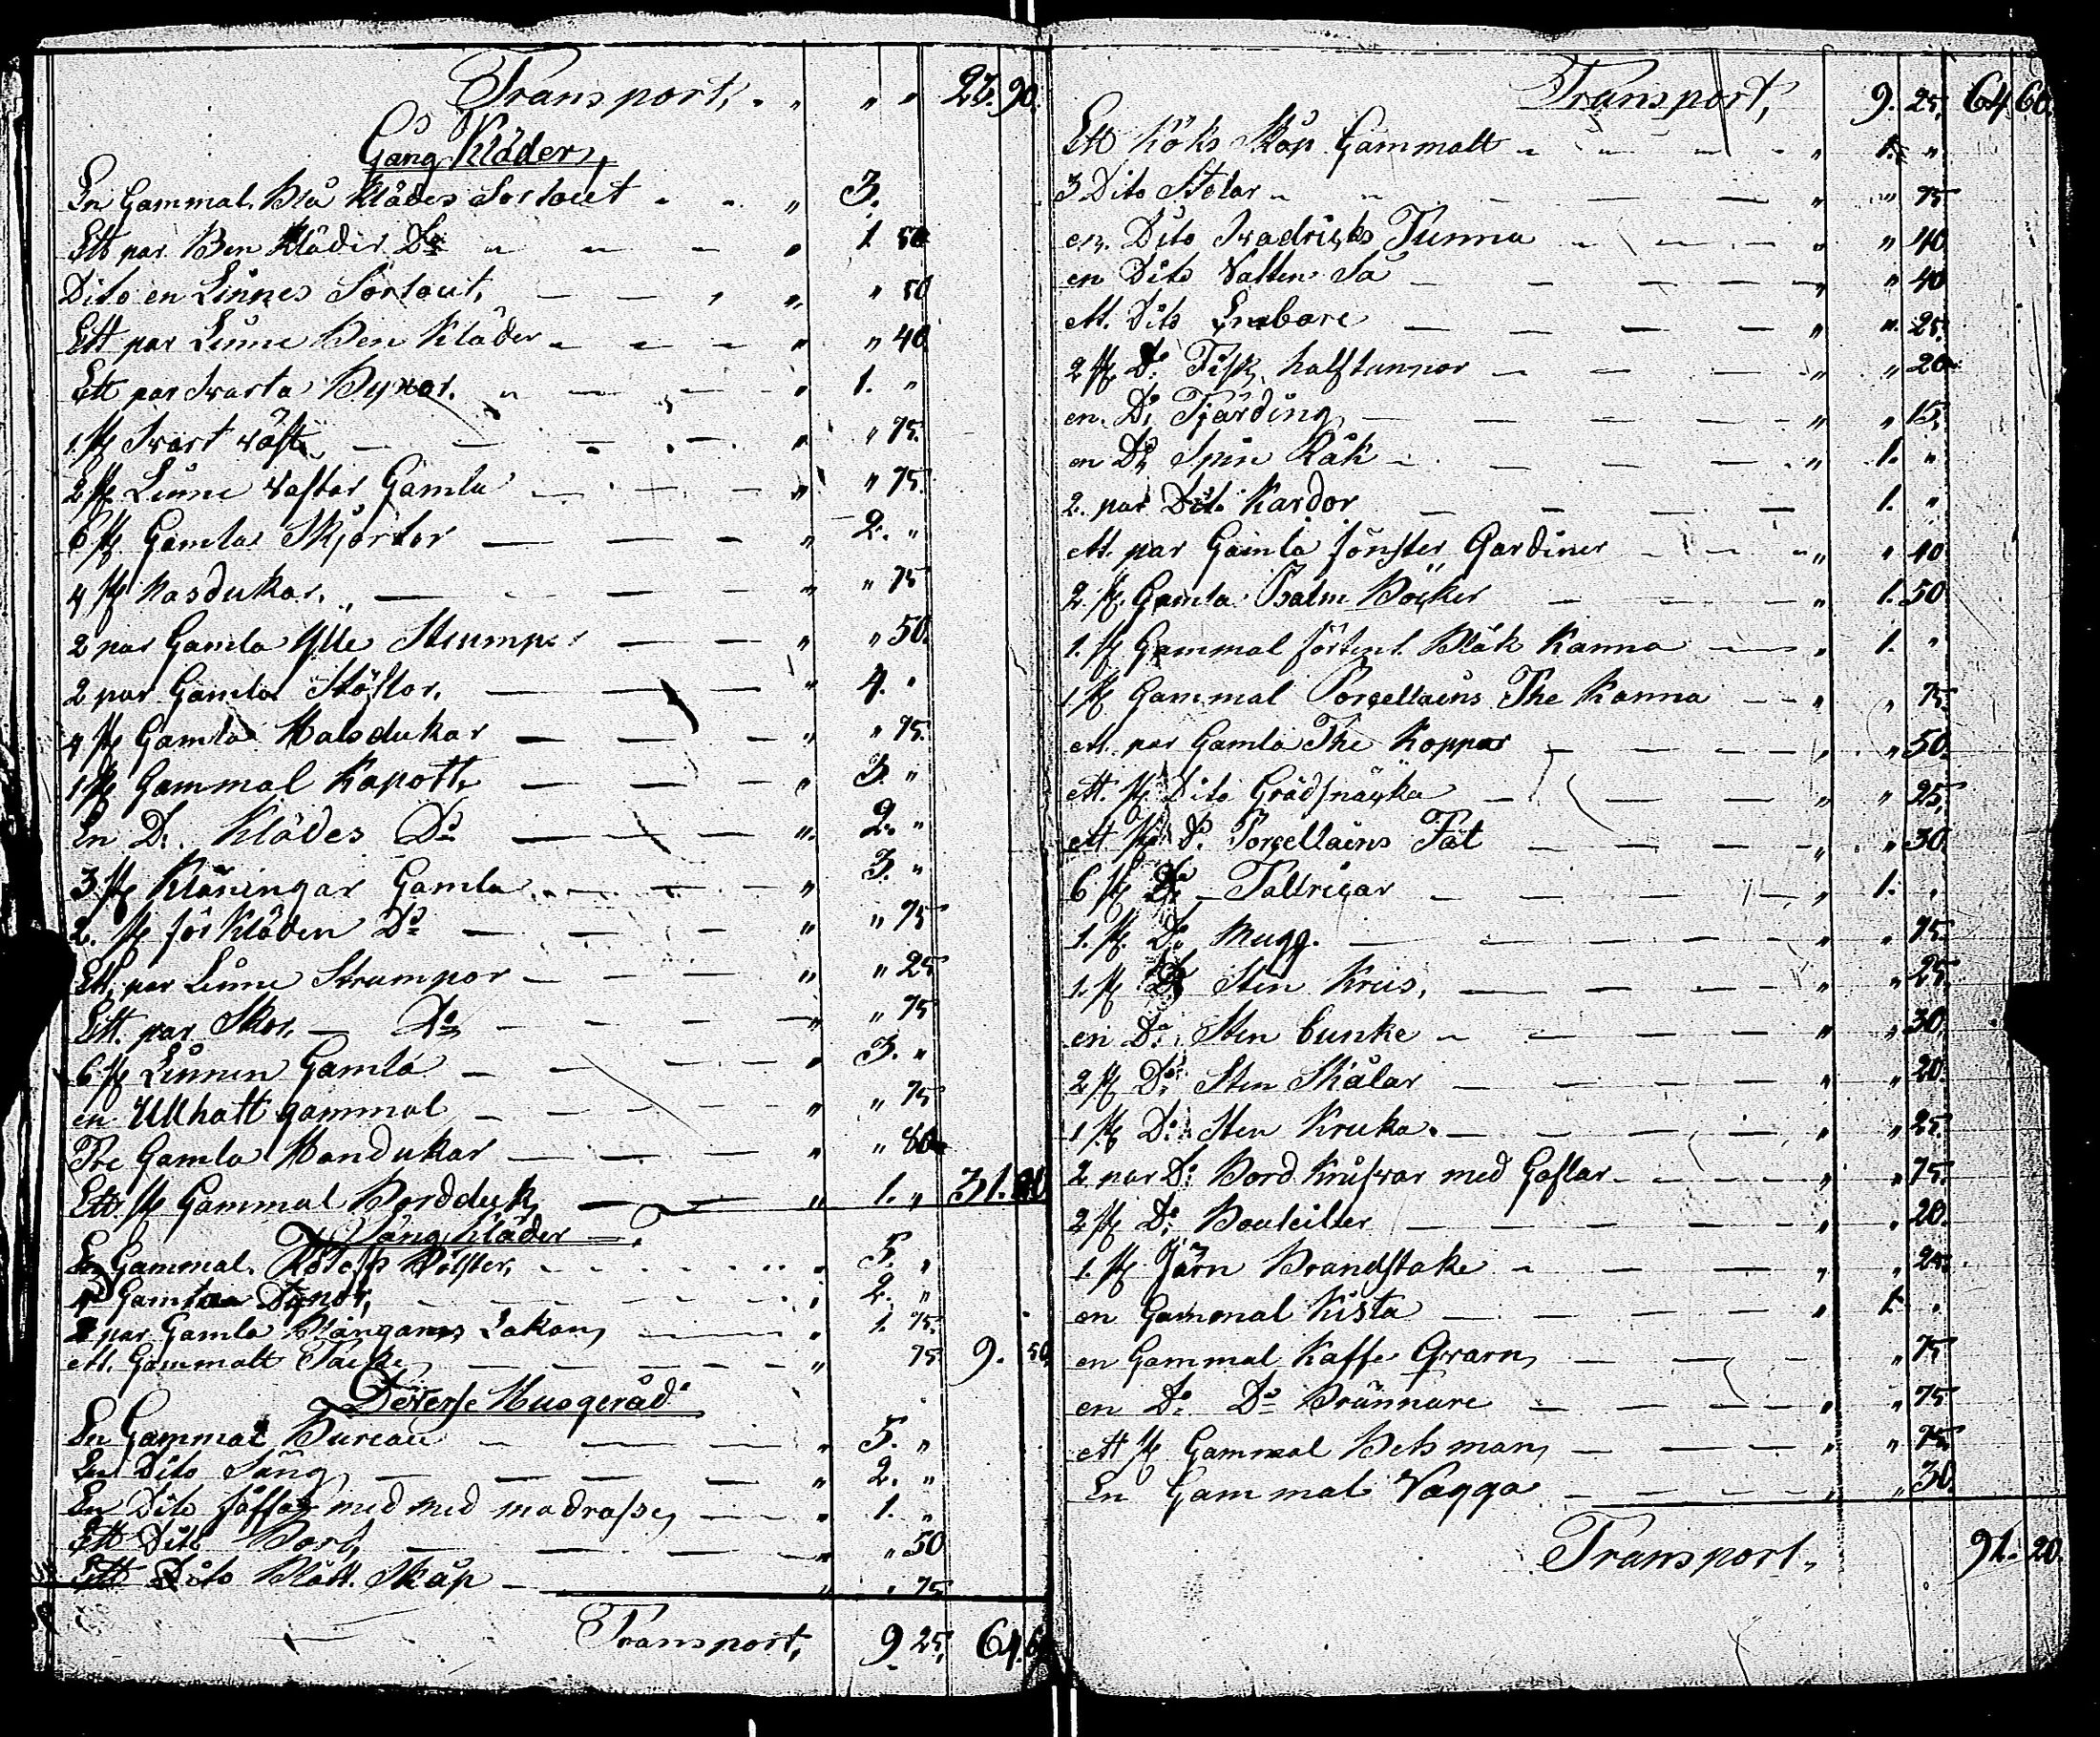 Transport, 22. 90.
Gång Kläder,
En Gammal Blå Klädes Sortout " 3.
Ett par Ben Kläder D:o " 1. 50
Dito en Linnes Sortout, " " 50
Ett par Linne Ben Kläder " " 40
Ett par Svarta Byxor. " 1. "
1 st Svart väst " " 75.
2 st Linne Västar Gamla " " 75.
6 st Gamla Skjortor " 2. "
4 st Nasdukar. " " 75
2 par Gamla Ylle Strumpor " " 50.
2 par Gamla Stöflor, " 4. "
4 st Gamla Halsdukar " " 75.
1 st Gammal Kapott, " 3. "
En D:o Klädes D:o " 2. "
3 st Kläningar Gamla " 3. "
2. st förKläden D:o " " 75
Ett par Linne Strumpor " " 25
Ett par Skor, D:o " " 75
6 st Linnen Gamla " 3. "
en Ullhatt gammal " " 75
Tre Gamla Handukar " " 80
Ett st Gammal Bordduk, " 1. " 31.
Säng Kläder
En Gammal Bolster, " 5. "
Gamla Dynor, " 2. "
par Gamla Blångarns Lakan, " 1. 75.
ett Gammalt Täcke, " 75 9. 50
Diverse Husgeråd
En Gammal Bureau " 5. "
En Dito Säng, " 2. "
En Dito soffa med med madrasse, " 1. "
Ett Dito Bord, " " 50
Ett Dito Blått Skåp " " 75
Transport, 9. 25, 64.
Transport, 9. 25, 64 60.
Ett Köks Skåp Gammalt " 1. "
3 Dito Stolar " " 75
en Dito Svadricks Tunna " " 40
en Dito Vatten Så " " 40
ett Dito Embare " " 25
2 st D:o Fisk halftunnor " " 20
en D:o Fjärding, " " 15
en D:o Spin Råk " 1. "
2. par Dito Kardor 1. "
ett par Gamla fönster Gardiner " " 40
2. st Gamla Psalm Böcker " 1. 50
1. st Gammal förtent Bläk Kanna " 1. "
1 st Gammal Porcellains The Kanna " " 75
ett par Gamla The Koppar " " 50.
ett st Dito Grädsnäcka " " 25
ett st D:o Porcellains Fat " " 30
6 st D:o Tallrickar " 1. "
1. st D:o Mugg. " " 75
1. st D:o Sten Krus, " " 25
en D:o Sten bunke " " 30
2 st D:o Sten Skålar " " 20
1 st D:o Sten Kruka. " " 25
2 par D:o Bord Knifvar med Gaflar " " 75
2 st D:o Bouteiller " " 20.
1. st Järn Brandstake " " 25
en Gammal Kista " 1. "
en Gammal Kaffe Qvarn, " " 75
en D:o D:o Brännare " " 75
ett st Gammal Betsman, " " 75
En Gammal Vagga " " 30.
Transport, 91. 20.